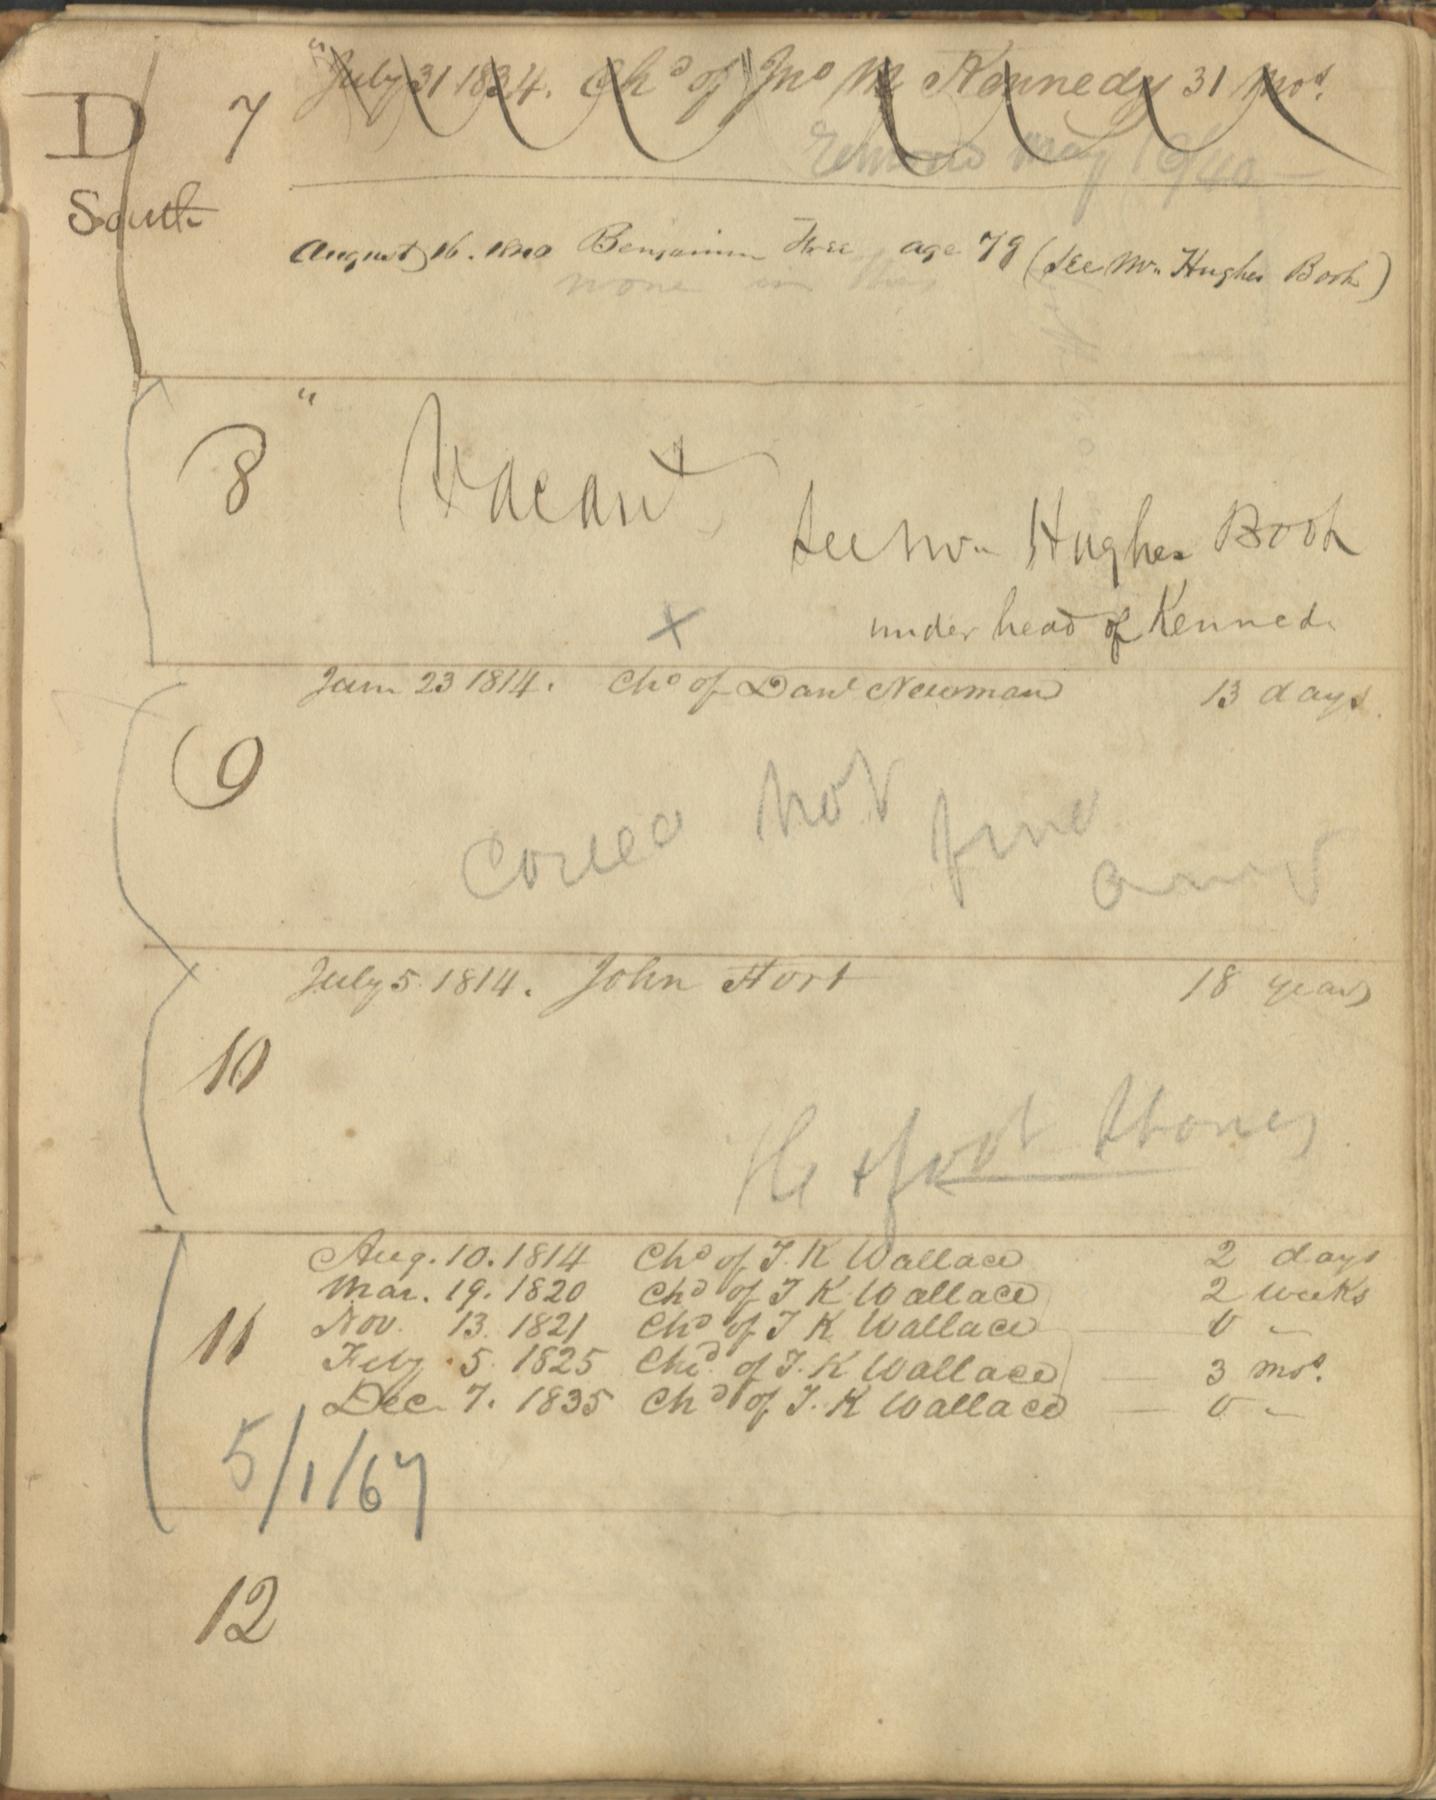 D 7 "July 31 1834. Chd of Jno M Kennedy 31 mos.
Removed May 19/40 —
South
August 16. 1840 Benjamin Free age 78 (See Wm Hughes Book)
none in this
8 " Vacant
See Wm Hughes Book
under head of Kenned
X
Jan 23 1814. Chd of Danl Newman 13 days
9
Could not find any
July 5. 1814. John Hort 18 years
10
He & foot Stones
Aug. 10. 1814 Chd of T. K Wallace 2 days
Mar. 19. 1820 Chd of T K Wallace 2 weeks
11 Nov. 13. 1821 Chd of T K Wallace — 0 -
Feby. 5. 1825 Chd. of T. K Wallace — 3 mos.
Dec. 7. 1835 Chd of T. K Wallace — 0 -
5/1/67
12